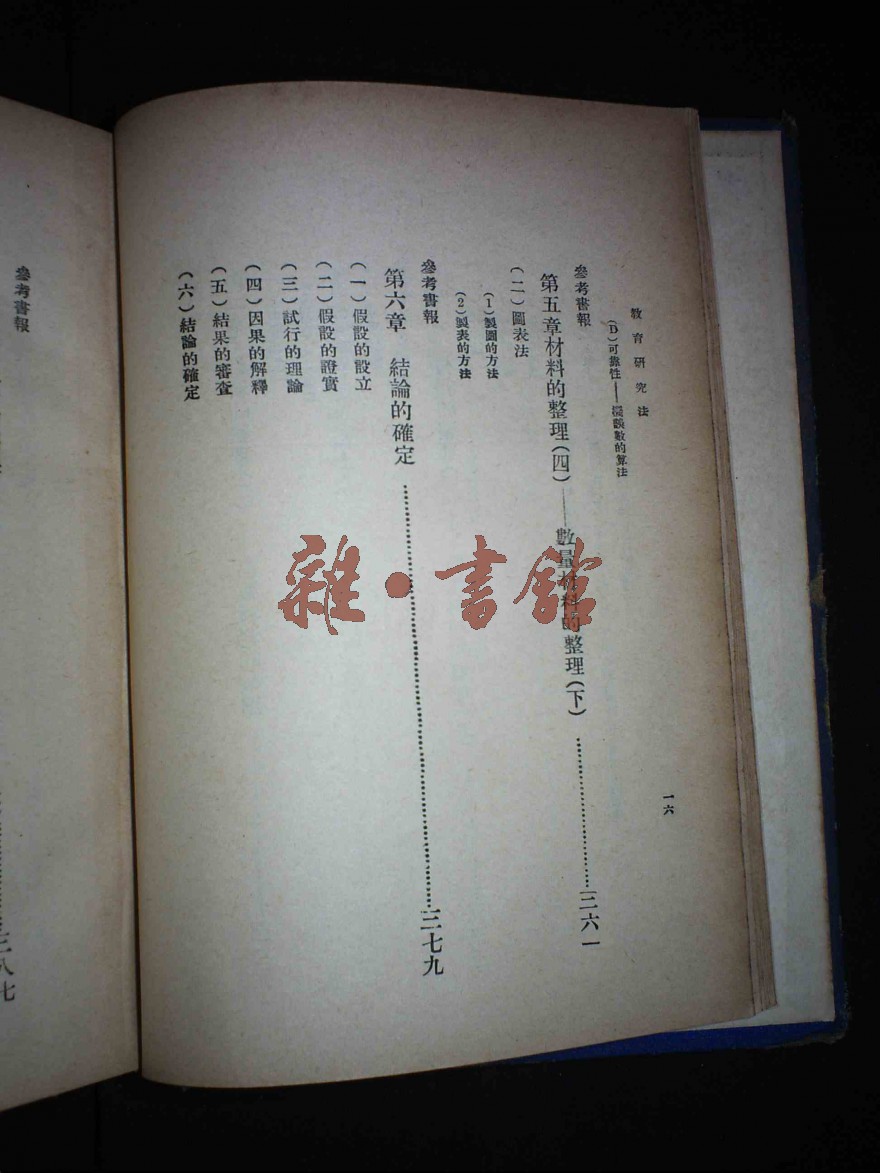 教育研究法
(D)可靠性——機誤數的算法
參考書報
第五章材料的整理(四)——數量材料的整理(下)……三六一
(二)圖表法
(1)製圖的方法
(2)製表的方法
參考書報
第六章 結論的確定……三七九
(一)假設的設立
(二)假設的證實
(三)試行的理論
(四)因果的解釋
(五)結果的審查
(六)結論的確定
一六
參考書報
三八七
雜·書館